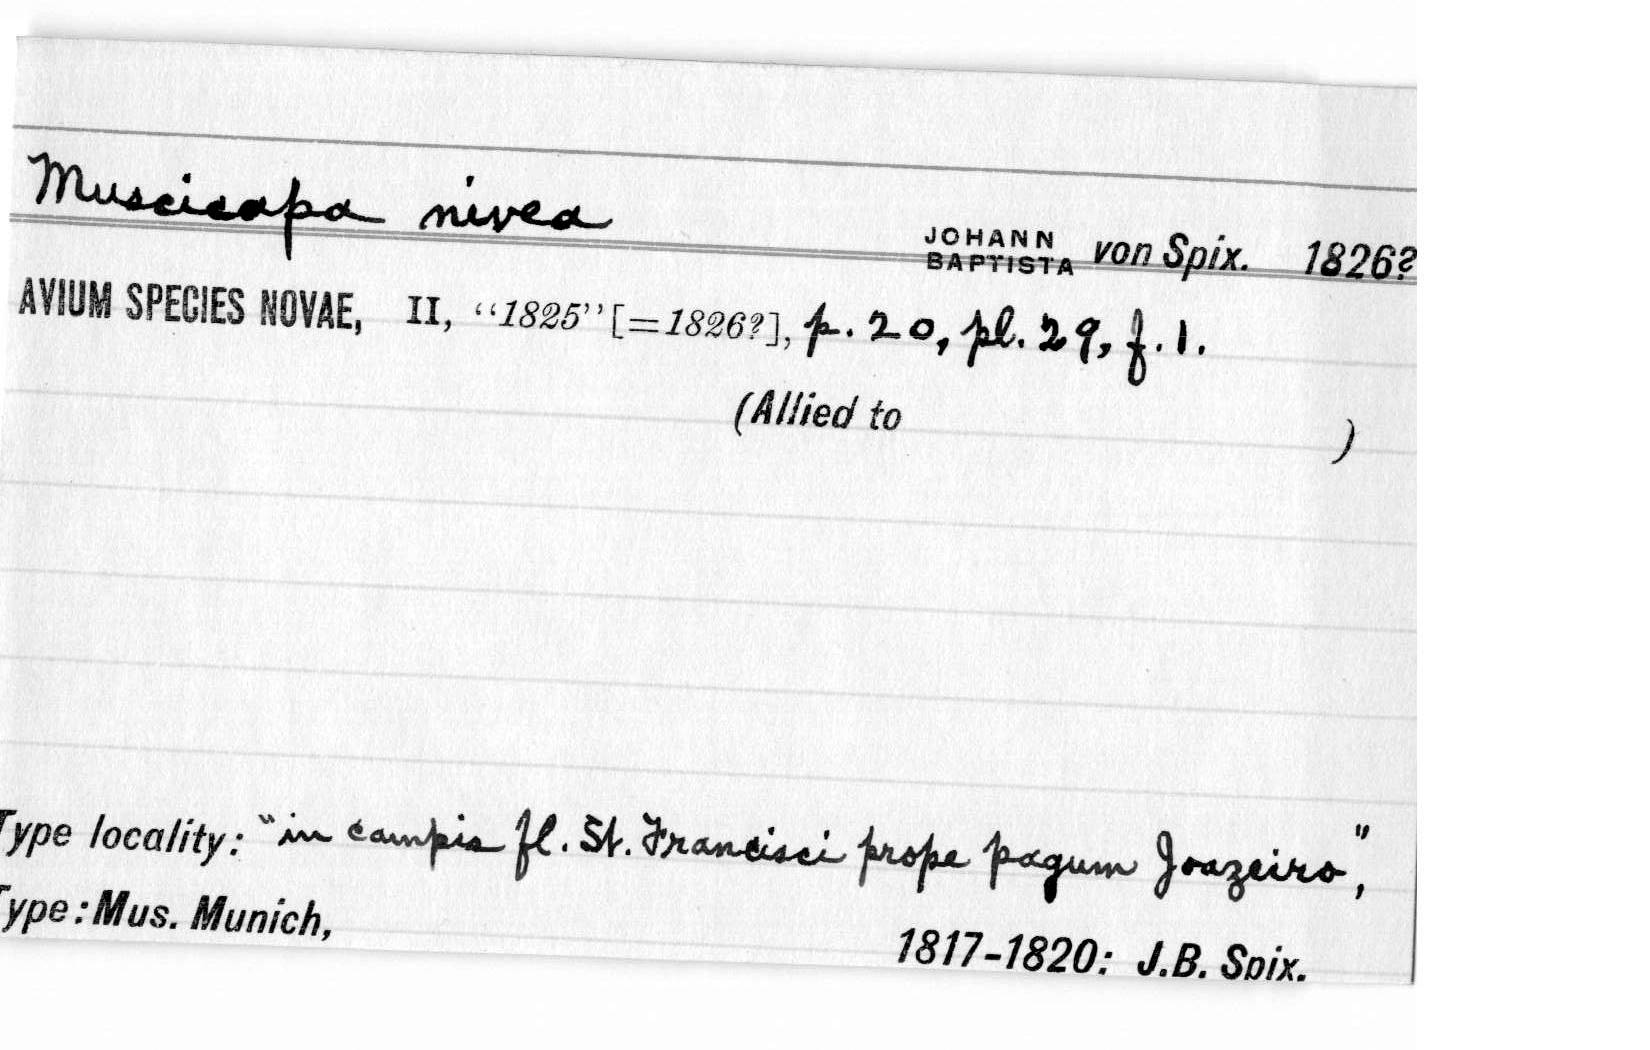 Muscicapa nivea
JOHANN BAPTISTA von Spix. 1826?
AVIUM SPECIES NOVAE, II, "1825" [=1826?], p. 20, pl. 29, f. 1.
(Allied to )
Type locality: "in campis fl. St. Francisci prope pagum Joazeiro,"
Type: Mus. Munich,
1817-1820: J.B. Spix.